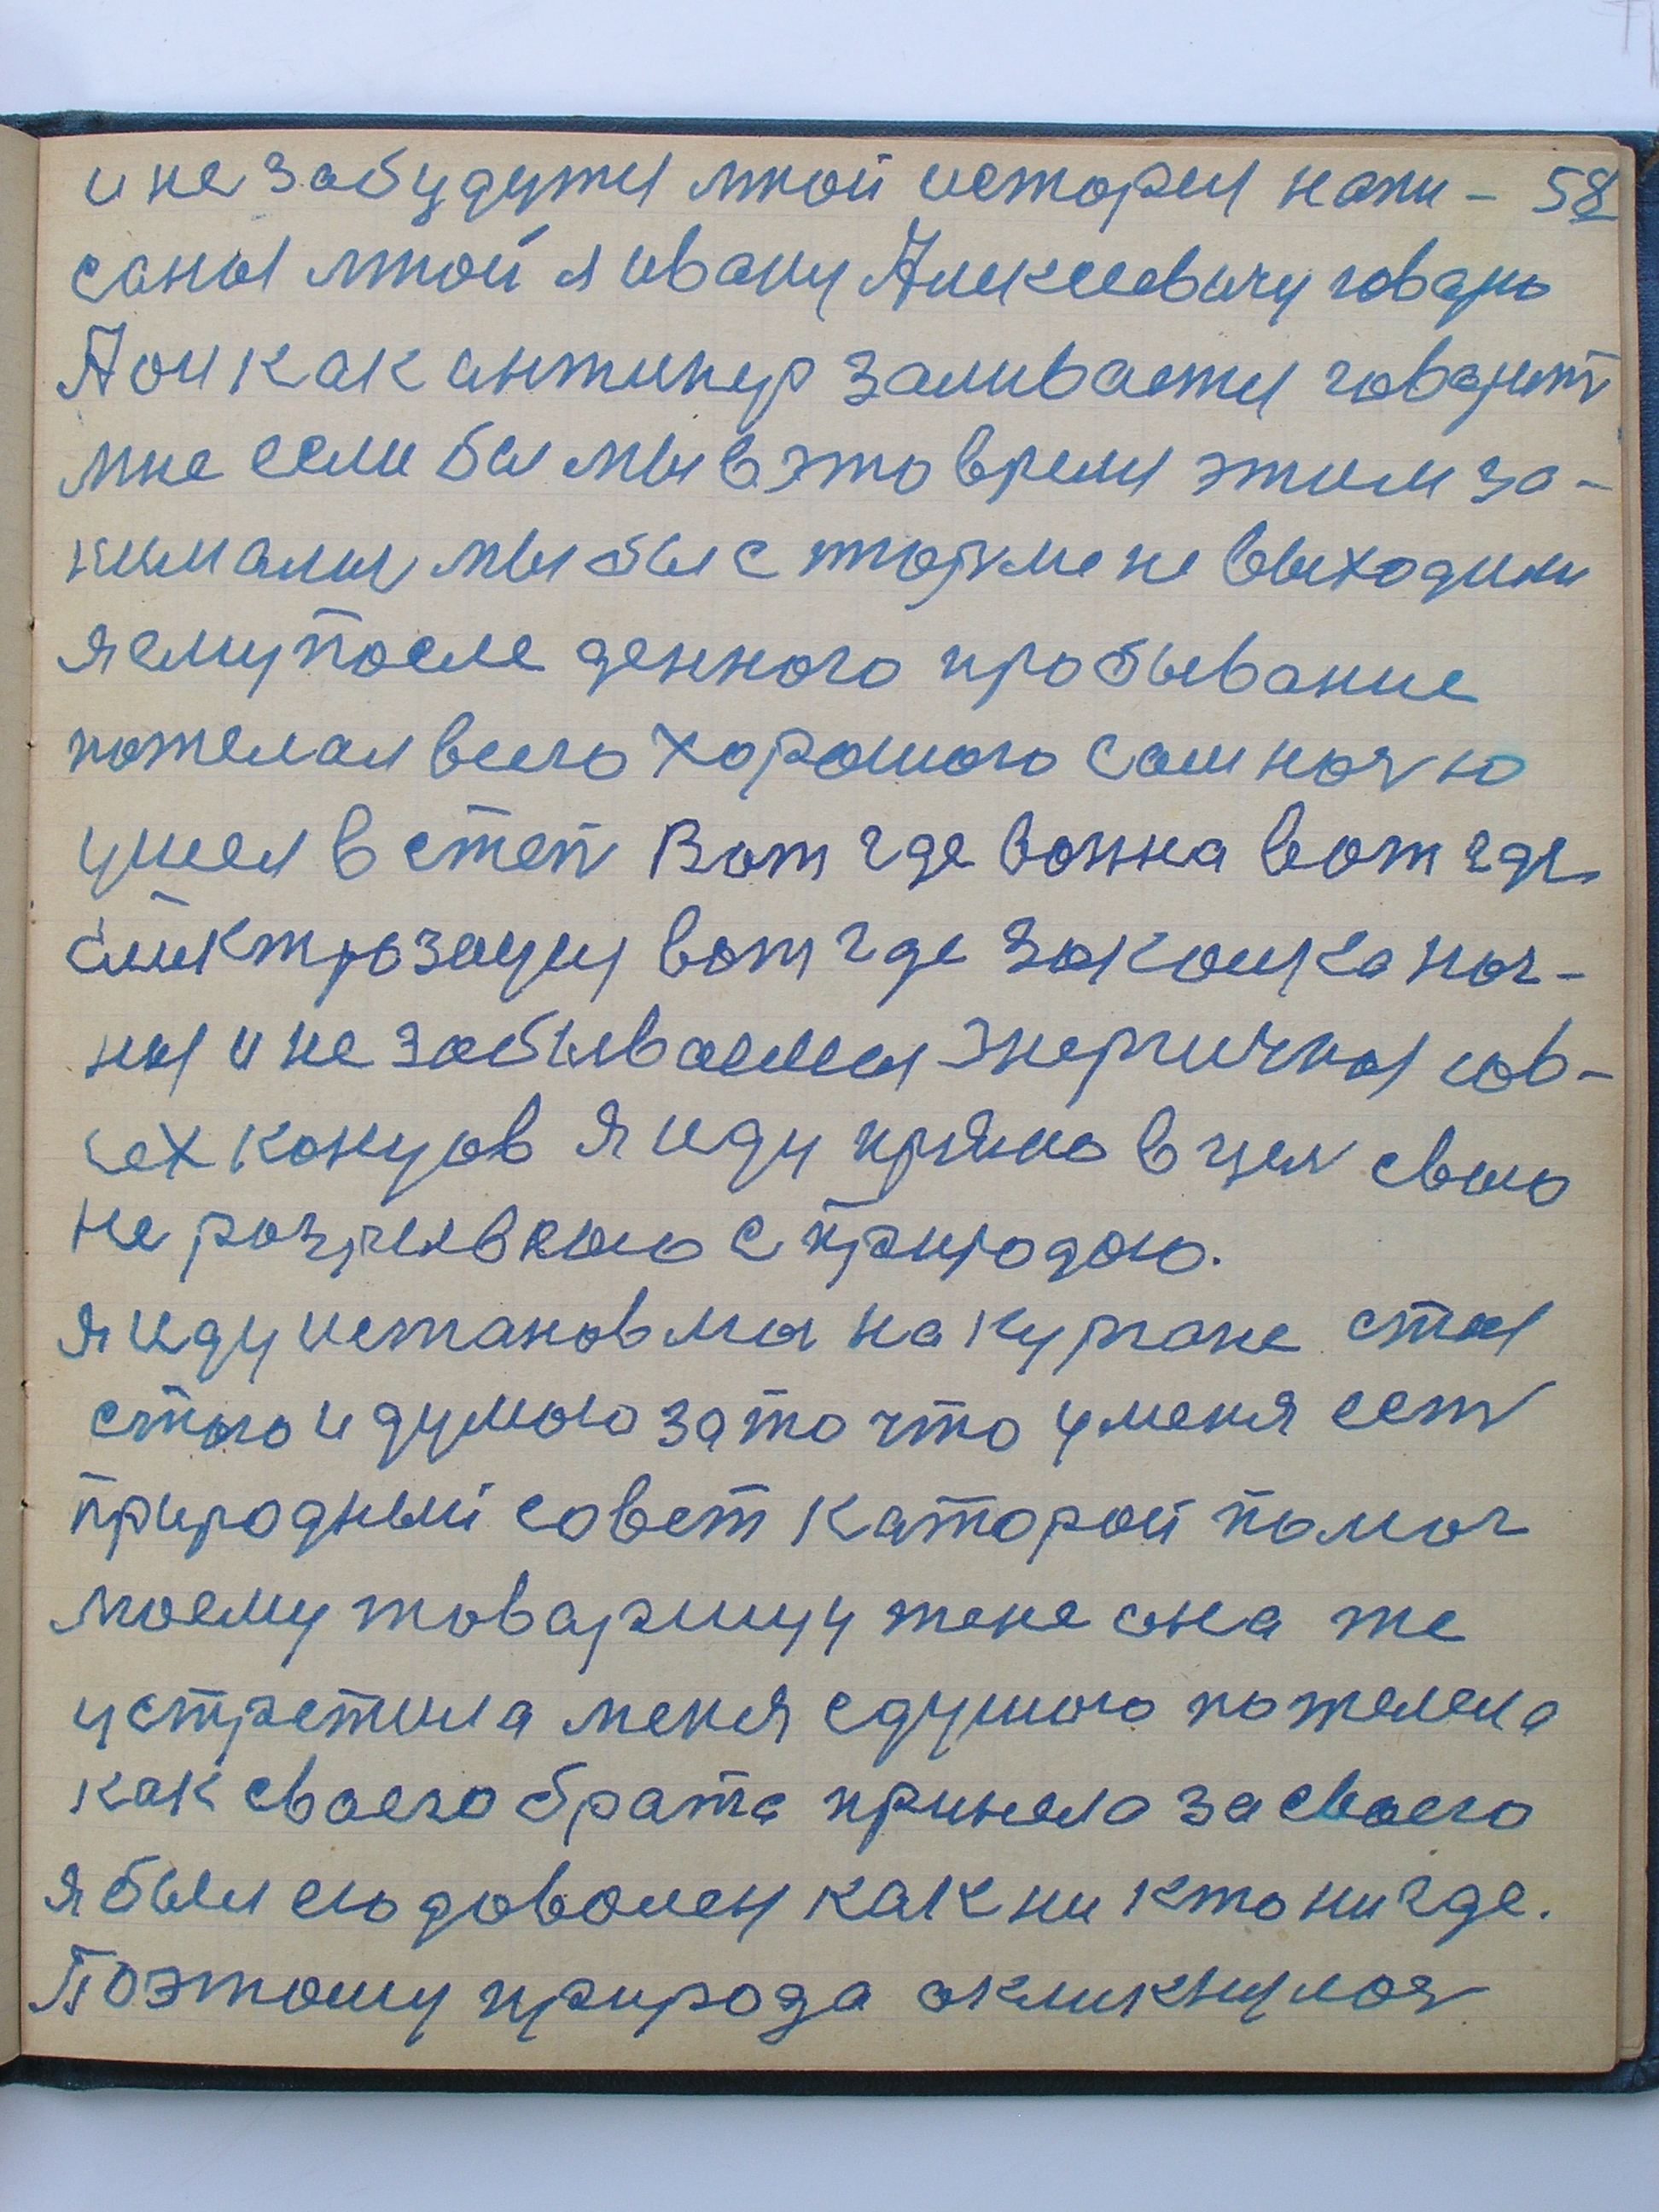 и не забудутся мной история напи- 58
саная мной я ивану Алексеевичу говарю
А он как антихер заливается говарит
мне если бы мы в это время этим за-
нималис мы бы с тюрме не выходили
я ему после денного пробывание
пожелал всего хорошего сам ночю
ушел в степ Вот где вонна вот где
електрозация вот где закалка ноч-
ная и не забываемая энергичная сов-
сех концов я иду прямо в цел свою
не разрываюсь с природою.
я иду истановлюс на кургане стал
стою и думаю за то что у меня ест
природный совет каторой помог
моему товарищу у жене она же
устретила меня с душою пожелела
как своего брата принела за своего
я был ею доволен как ни кто ни где.
Поэтому природа окликнулас